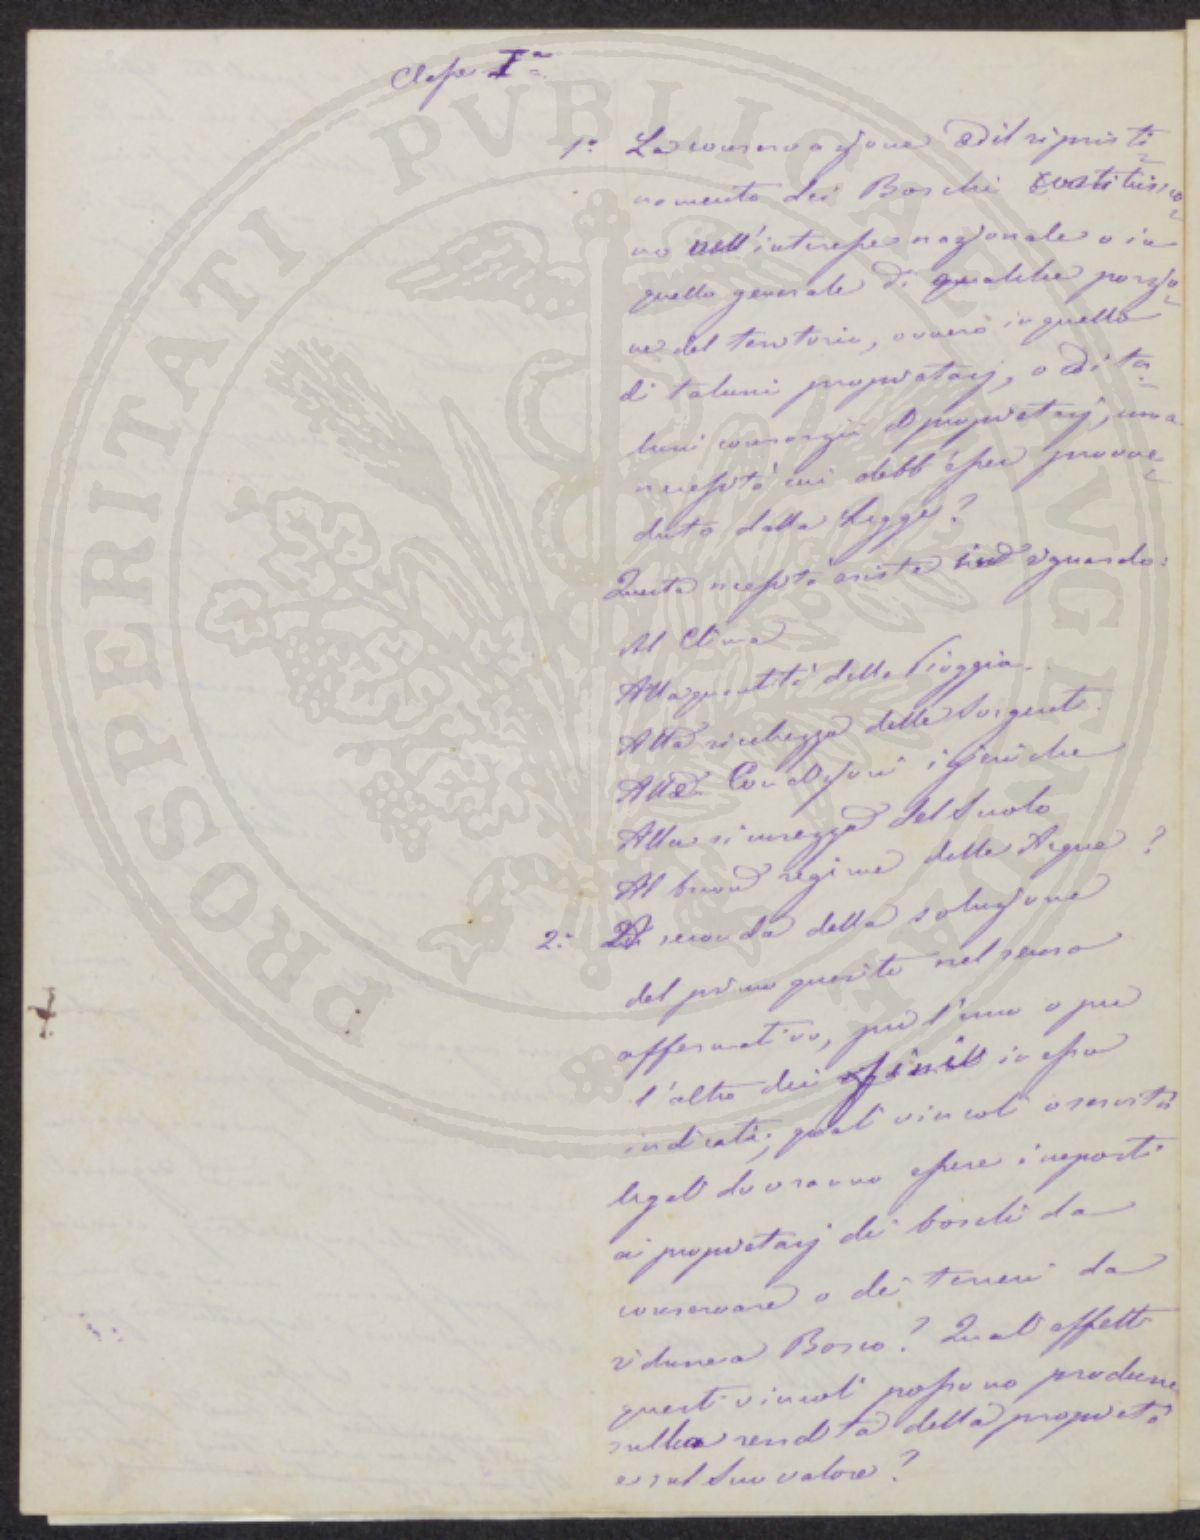 Classe Iª
1º La conservazione ed il ripristi-
namento dei Boschi costituisco-
no nell'interesse nazionale o in
quello generale di qualche porzio-
ne del territorio, ovvero in quello
di taluni proprietarj, o di ta-
luni consorzii di proprietarj, una
necessità cui debb'esser provve-
duto dalla Legge?
Questa necessità esiste in riguardo:
Al Clima
Alla quantità della Pioggia.
Alla ricchezza delle Sorgenti.
Alle Condizioni igieniche
Alla sicurezza del Suolo
Al buon regime delle Acque?
2º A seconda della soluzione
del primo quesito nel senso
affermativo, per l'uno o per
l'altro dei fini in esso
indicati; quali vincoli o servitù
legali dovranno essere imposti
ai proprietarj dei boschi da
conservare o dei terreni da
ridurre a Bosco? Quali effetti
questi vincoli possono produrre
sulla rendita della proprietà
e sul suo valore?
PROSPERITATI PVBLICAE AVGENDAE